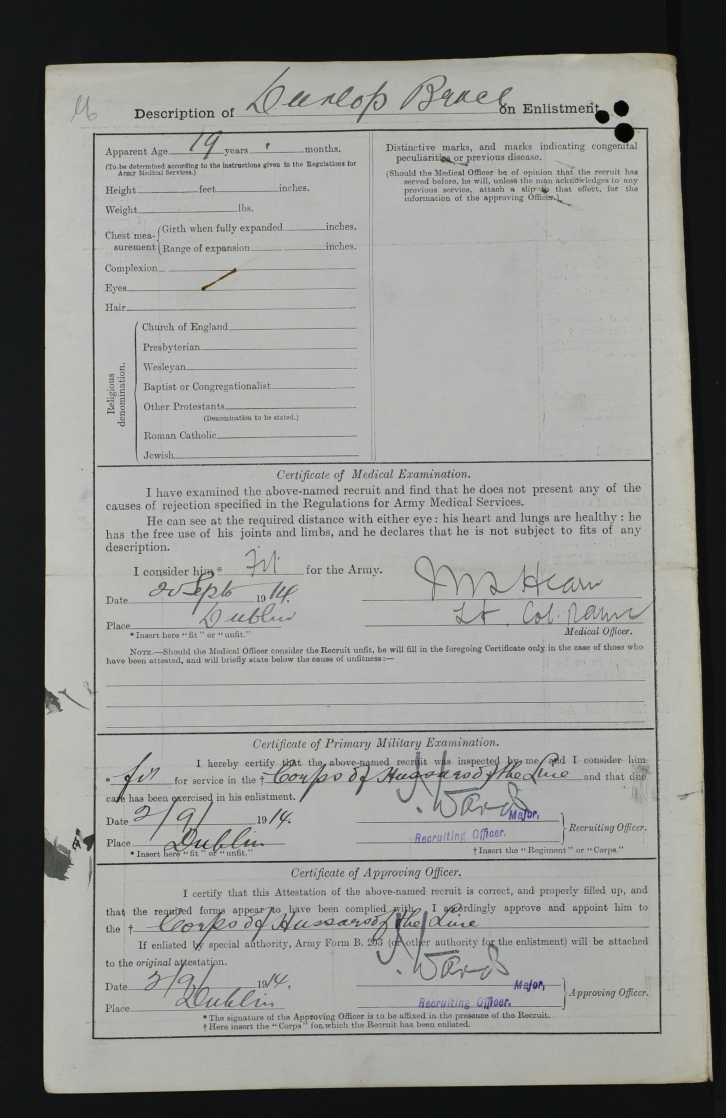 Description of Dunlop on Enlistment.
Apparent Age 19 years months.
(To be determined according to the instructions given in the Regulations for
Army Medical Services.)
Height feet inches.
Weight lbs.
Chest mea-
surement
Girth when fully expanded inches.
Range of expansion inches.
Complexion
Eyes
Hair
Religious
denomination.
Church of England
Presbyterian
Wesleyan
Baptist or Congregationalist
Other Protestants
(Denomination to be stated.)
Roman Catholic
Jewish
Distinctive marks, and marks indicating congenital
peculiarities or previous disease.
(Should the Medical Officer be of opinion that the recruit has
served before, he will, unless the man acknowledges to any
previous service, attach a slip to that effect, for the
information of the approving Officer.)
Certificate of Medical Examination.
I have examined the above-named recruit and find that he does not present any of the
causes of rejection specified in the Regulations for Army Medical Services.
He can see at the required distance with either eye : his heart and lungs are healthy : he
has the free use of his joints and limbs, and he declares that he is not subject to fits of any
description.
I consider him * Fit for the Army.
Date Sept 1914.
Place Dublin
* Insert here "fit" or "unfit."
Hearn
Lt. Col.
Medical Officer.
NOTE.—Should the Medical Officer consider the Recruit unfit, he will fill in the foregoing Certificate only in the case of those who
have been attested, and will briefly state below the cause of unfitness:—
Certificate of Primary Military Examination.
I hereby certify that the above-named recruit was inspected by me and I consider him
* fit for service in the † Corps of Hussars of the Line and that due
care has been exercised in his enlistment.
Date 2/9/ 1914.
Place Dublin
* Insert here "fit" or "unfit."
Ward
Major,
Recruiting Officer.
Recruiting Officer.
† Insert the "Regiment" or "Corps."
Certificate of Approving Officer.
I certify that this Attestation of the above-named recruit is correct, and properly filled up, and
that the required forms appear to have been complied with. I accordingly approve and appoint him to
the † Corps of Hussars of the Line
If enlisted by special authority, Army Form B. 203 (or other authority for the enlistment) will be attached
to the original attestation.
Date 2/9/ 1914.
Place Dublin
Ward
Major,
Recruiting Officer.
Approving Officer.
* The signature of the Approving Officer is to be affixed in the presence of the Recruit.
† Here insert the "Corps" for which the Recruit has been enlisted.